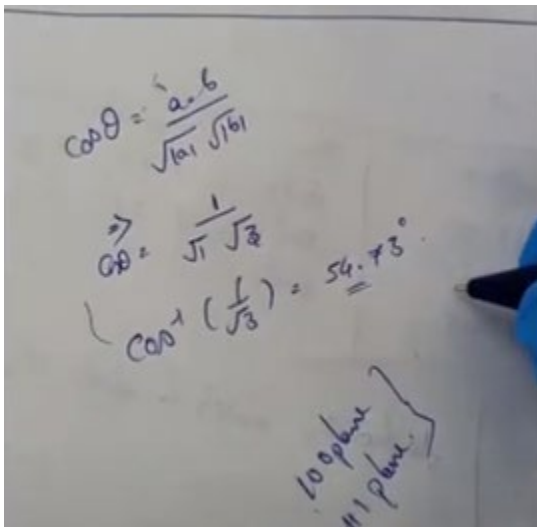 cosθ = a.b / √|a| √|b|
⇒ cosθ = 1 / √1 √3
cos⁻¹ (1/√3) = 54.73°.
100 plane
111 plane.